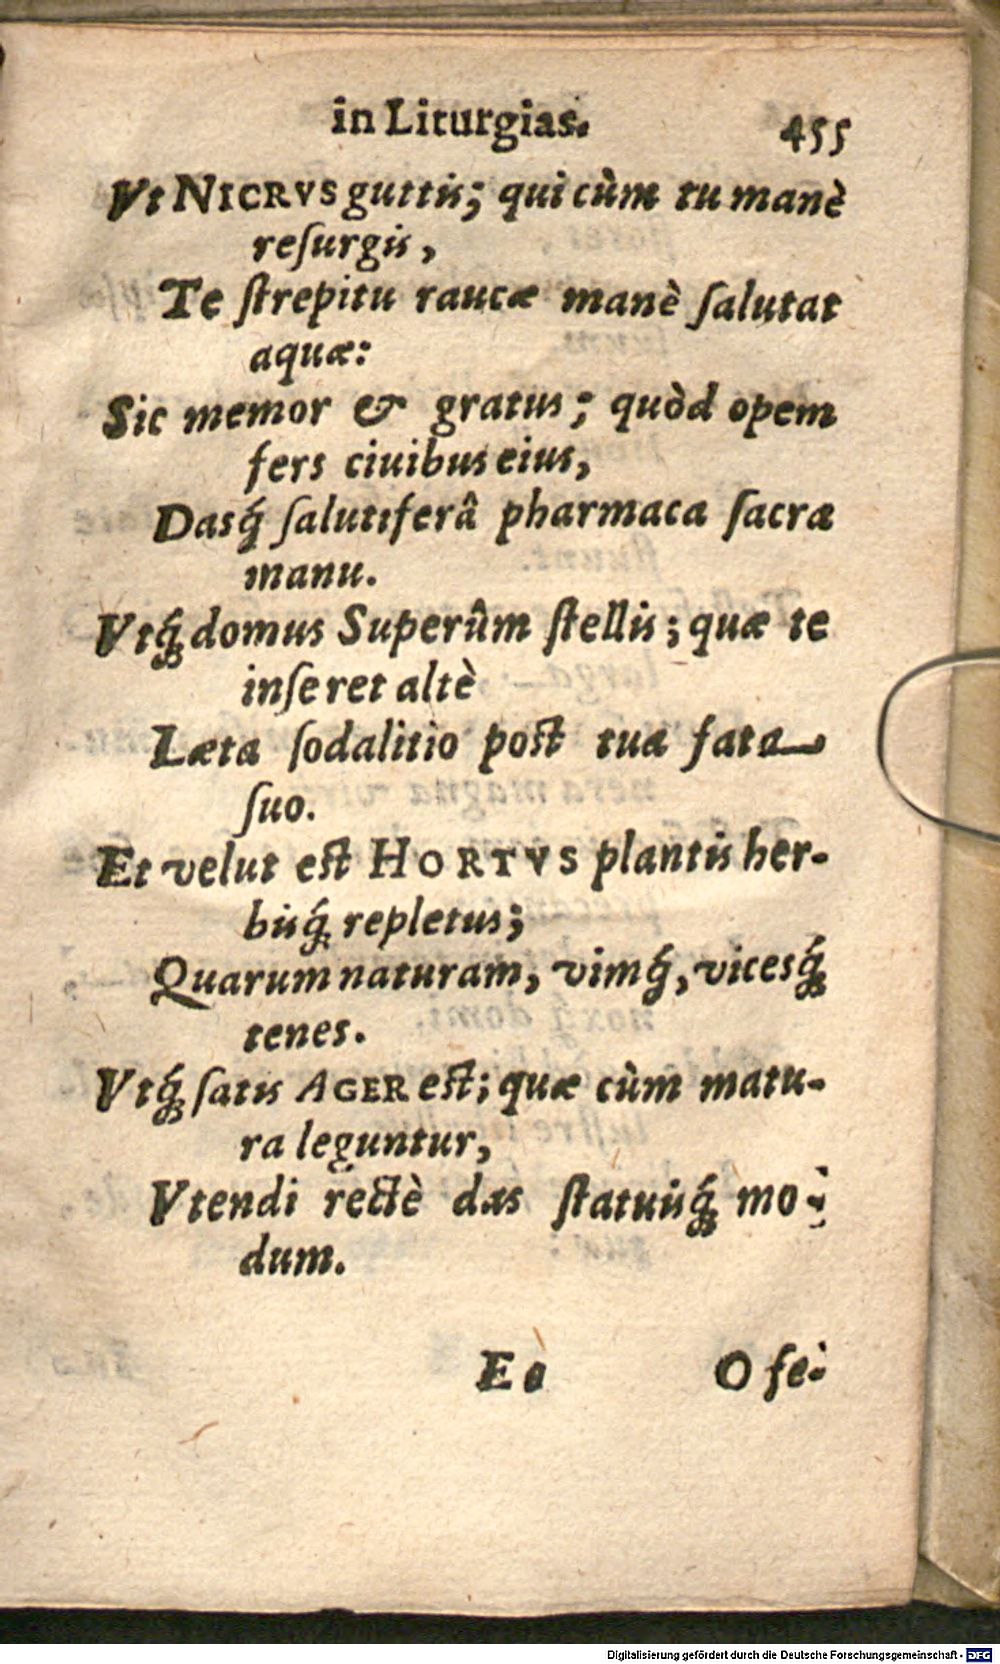 in Liturgias. 455
Vt NICRVS guttis; qui cùm tu manè
resurgis,
Te strepitu raucæ manè salutat
aquæ:
Sic memor & gratus; quòd opem
fers ciuibus eius,
Dasq́; salutiferâ pharmaca sacra
manu.
Vtq́; domus Superûm stellis; quæ te
inseret altè
Læta sodalitio post tua fata
suo.
Et velut est HORTVS plantis her-
bisq́; repletus;
Quarum naturam, vimq́;, vicesq́;
tenes.
Vtq́; satis AGER est; quæ cùm matu-
ra leguntur,
Vtendi rectè das statuisq́; mo-
dum.
O fe-
Digitalisierung gefördert durch die Deutsche Forschungsgemeinschaft - DFG